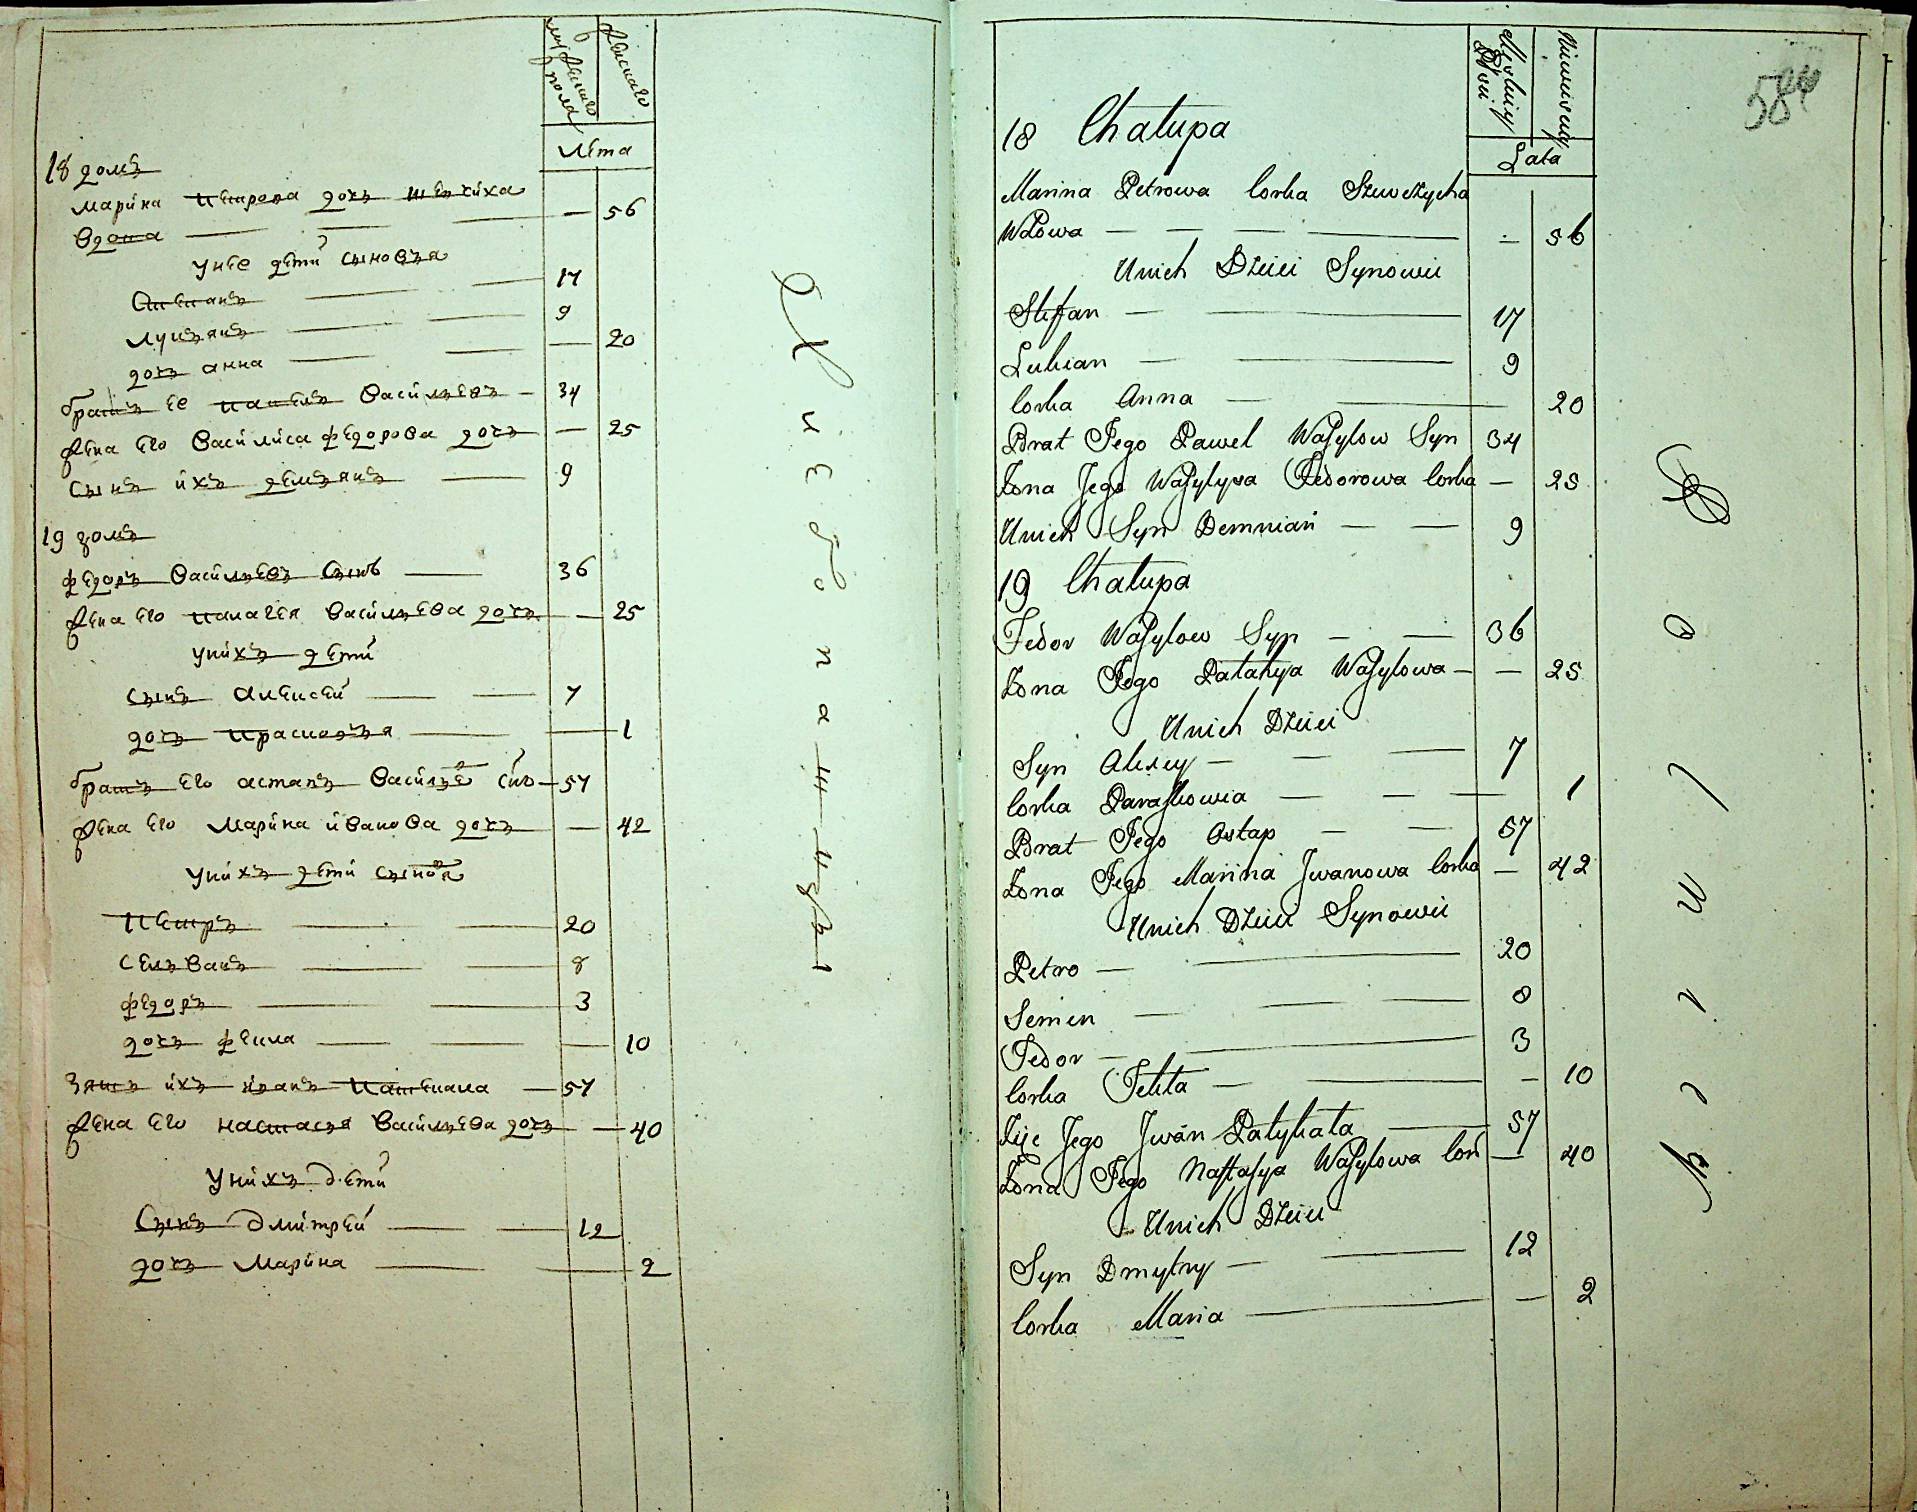 мужескаго пола
женскаго
Лѣта
18 домъ
марина петрова дочь шевчиха
вдова — — — 56
у нее дети сыновья
Степанъ — — 17
лукьянъ — — 9
дочь анна — — — 20
братъ ее павелъ васильевъ — 34
жена его василиса федорова дочь — 25
сынъ ихъ демьянъ — 9
19 домъ
федоръ васильевъ сынъ — 36
жена его палагея васильева дочь — 25
у нихъ дети
сынъ алексей — — 7
дочь прасковья — — 1
братъ его астапъ василье снъ — 57
жена его марина иванова дочь — 42
у нихъ дети сыновя
петръ — — 20
сельванъ — — 8
федоръ — — 3
дочь фекла — — — 10
зять ихъ иванъ — 57
жена его настасья васильева дочь — 40
у нихъ дети
Сынъ дмитрей — — 12
дочь марина — — 2
Хлебопашцы
584
Męskiey Płci
Niewieściey
Lata
18 Chałupa
Marina Petrowa Corka Szewczycha
Wdowa — — — — - 56
Unich Dzieci Synowie
Stefan — — 17
Lukian — — 9
Corka Anna — — 20
Brat Jego Pawel Wasylow Syn 34
Żona Jego Wasylysa Fedorowa Corka — 25
Unich Syn Demnian — — 9
19 Chałupa
Fedor Wasylow Syn — — 36
Żona Jego Pałahya Wasylowa — — 25
Unich Dzieci
Syn Alexey — — — 7
Corka Paraskowia — — — 1
Brat Jego Ostap — — 57
Żona Jego Marina Jwanowa Corka — 42
Unich Dzieci Synowie
Petro — — 20
Semen — — — 8
Fedor — — 3
Corka Fekła — — — 10
Jego Jwan — 57
Żona Jego Nastasya Wasylowa Cor — 40
Unich Dzieci
Syn Dmytry — — 12
Corka Maria — — 2